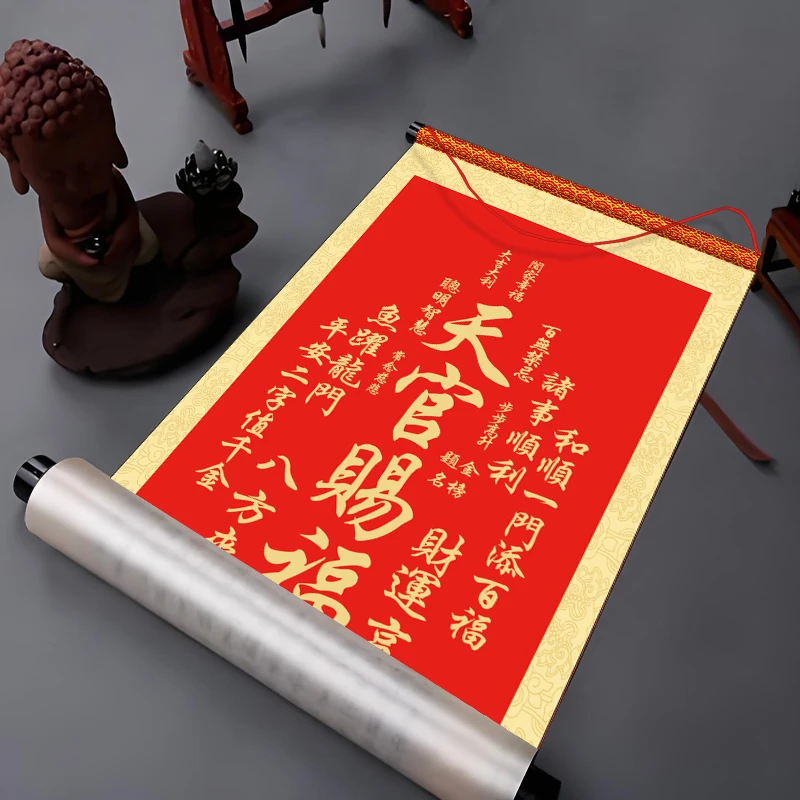 和順一門添百福
諸事順利
百無禁忌
步步高升
金榜
題名
財運
闔家幸福
天官賜福
大吉大利
聰明智慧
常念慈悲
魚躍龍門
平安二字值千金
八方